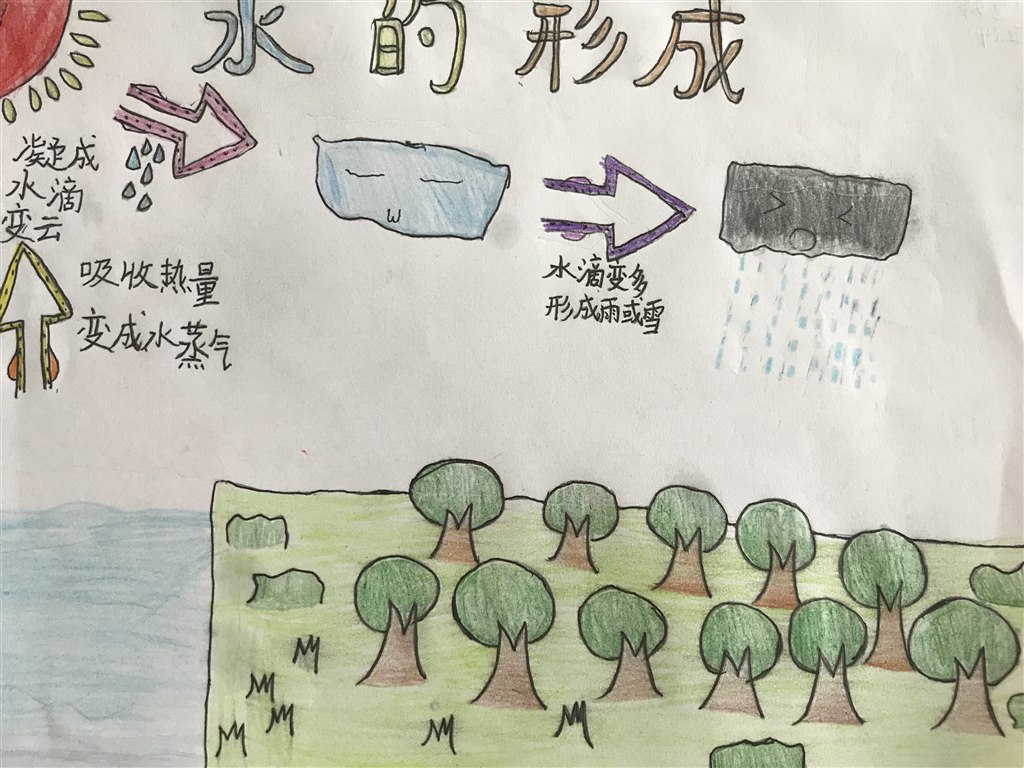 水的形成
凝成
水滴
变云
吸收热量
变成水蒸气
水滴变多
形成雨或雪